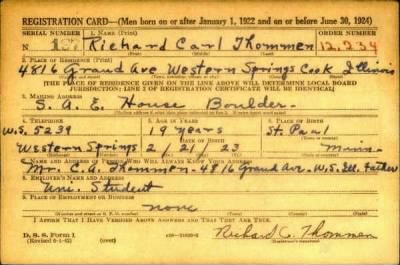 REGISTRATION CARD—(Men born on or after January 1, 1922 and on or before June 30, 1924)
SERIAL NUMBER 1. NAME (Print) ORDER NUMBER
N 187 Richard Carl Thommen 12,234
2. PLACE OF RESIDENCE (Print)
4816 Grand Ave Western Springs Cook Illinois
[THE PLACE OF RESIDENCE GIVEN ON THE LINE ABOVE WILL DETERMINE LOCAL BOARD
JURISDICTION; LINE 2 OF REGISTRATION CERTIFICATE WILL BE IDENTICAL]
3. MAILING ADDRESS
S. A. E. House Boulder
4. TELEPHONE 5. AGE IN YEARS 6. PLACE OF BIRTH
W.S. 5239 19 years St. Paul
DATE OF BIRTH
Western Springs 2/21/23 Minn.
7. NAME AND ADDRESS OF PERSON WHO WILL ALWAYS KNOW YOUR ADDRESS
Mr. C. A. Thommen - 4816 Grand Av. W.S. Ill. Father
8. EMPLOYER'S NAME AND ADDRESS
Uni. Student
9. PLACE OF EMPLOYMENT OR BUSINESS
none
I AFFIRM THAT I HAVE VERIFIED ABOVE ANSWERS AND THAT THEY ARE TRUE.
D. S. S. Form 1
Richard C. Thommen